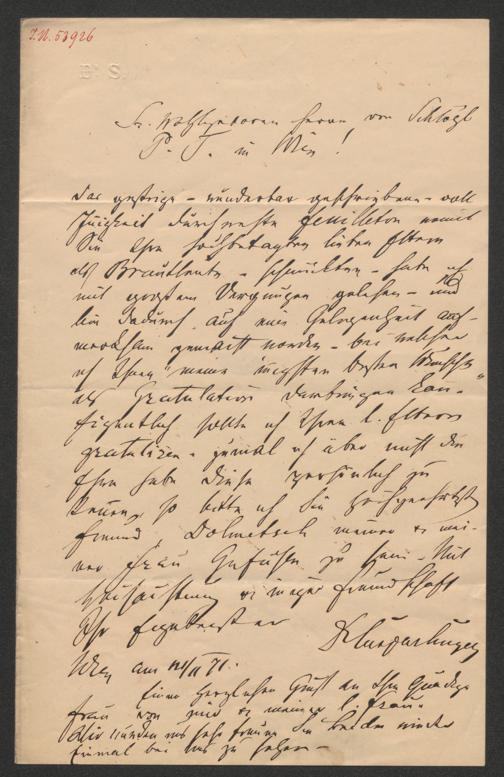 I.N. 53926
Sr. Wohlgeboren Herrn von Schlögl
P. T. in Wien!
Das gestrige - wunderbar geschriebene - voll
Innigkeit durchwehte Feuilleton womit
Sie Ihre hochbetagten lieben Eltern
als Brautleute - schmückten - habe ich
mit großem Vergnügen gelesen - und
bin dadurch auf eine Gelegenheit auf-
merksam gemacht worden - bei welcher
ich Ihnen meine innigsten besten Wünsche
als Gratulation darbringen kann -
Eigentlich sollte ich Ihren l. Eltern
gratuliren - zumal ich aber nicht die
Ehre habe diese persönlich zu
kennen, so bitte ich Sie
Freund, Dolmetsch meiner & mei-
ner Frau Gefühle zu sein - Mit
Hochachtung & inniger Freundschaft
Ihr Ergebenster
Wien am /II 71.
Einen herzlichen Gruß an Ihre Gnädige
Frau von mir & meiner l. Frau.
Wir würden uns sehr freuen Sie beide wieder
einmal bei uns zu sehen -